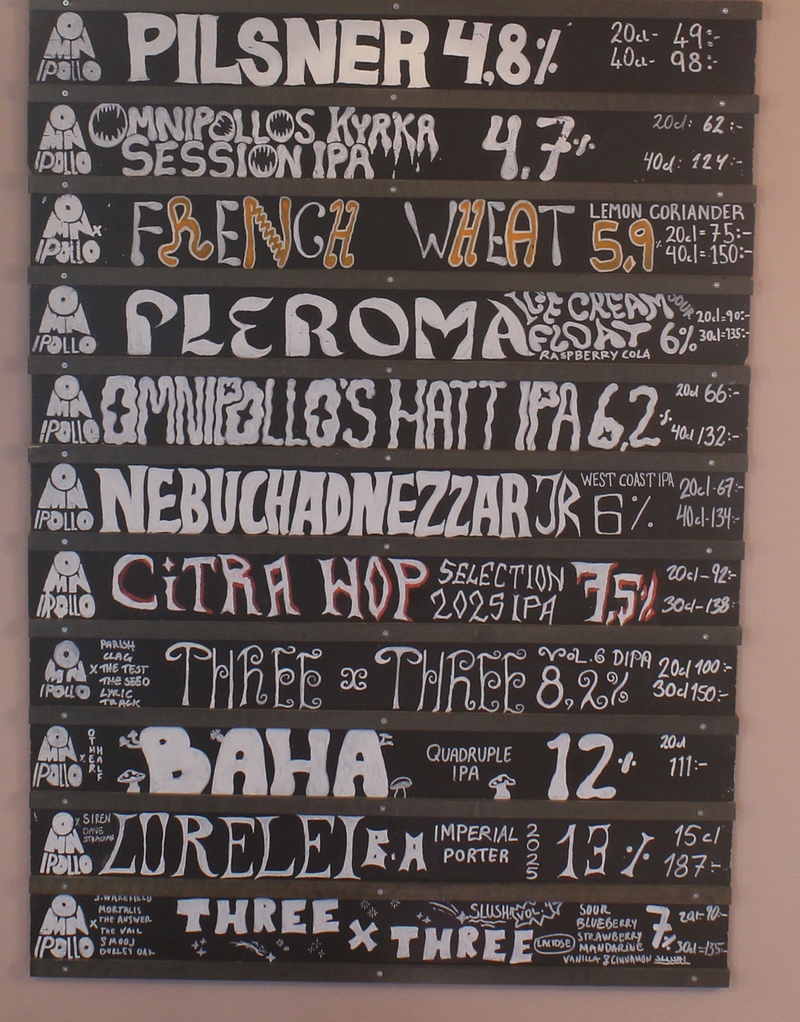 OMNIPOLLO PILSNER 4,8% 20cl- 49:-
40cl- 98:-
OMNIPOLLO OMNIPOLLOS KYRKA 4.7% 20cl: 62:-
SESSION IPA 40cl: 124:-
OMNIPOLLO x FRENCH WHEAT LEMON CORIANDER
5,9% 20cl=75:-
40cl=150:-
OMNIPOLLO PLEROMA ICE CREAM SOUR
FLOAT 6% 20cl=90:-
RASPBERRY COLA 30cl=135:-
OMNIPOLLO OMNIPOLLO'S HATT IPA 6,2% 20cl 66:-
40cl 132:-
OMNIPOLLO NEBUCHADNEZZAR JR WEST COAST IPA 20cl-67:-
6% 40cl-134:-
OMNIPOLLO CiTRA HOP SELECTION 7,5% 20cl-92:-
2025 IPA 30cl-138:-
OMNIPOLLO x PARISH
CLAG
THE TEST
THE SEED
LYRIC
TRACK
THREE x THREE VOL.6 DIPA 20cl 100:-
8,2% 30cl 150:-
OMNIPOLLO x OTHER HALF BAHA QUADRUPLE 12% 20cl
IPA 111:-
OMNIPOLLO x SIREN
DAVE
STRACHAN
LORELEI B.A IMPERIAL 2025 13% 15cl
PORTER 187:-
OMNIPOLLO x J. WAKEFIELD
MORTALIS
THE ANSWER
THE VEIL
SMOOJ
DURLEY OAK
THREE x THREE SLUSH VOL. LACTOSE
SOUR
BLUEBERRY
STRAWBERRY
MANDARINE
VANILLA & CINNAMON
7% 30cl=135:-